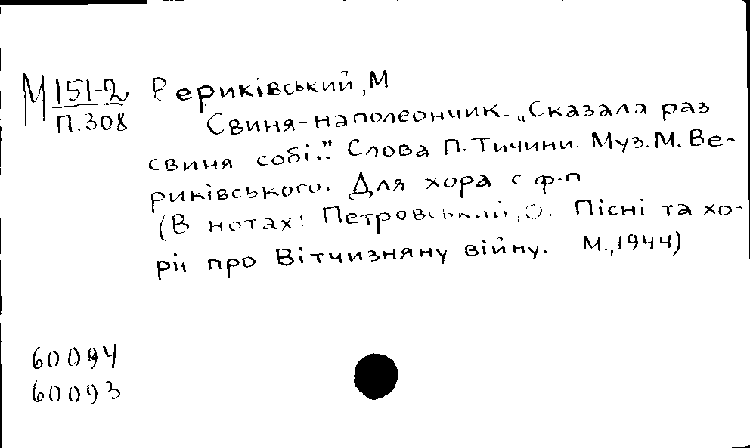 М 151-2
П.308
Вериківський, М
Свиня-наполеончик. „Сказала раз
свиня собі." Слова П. Тичини. Муз. М. Ве-
риківського. Для хора с ф-п
(В нотах: Петровський, О. Пісні та хо-
ри про Вітчизняну війну. М., 1944)
60094
60093